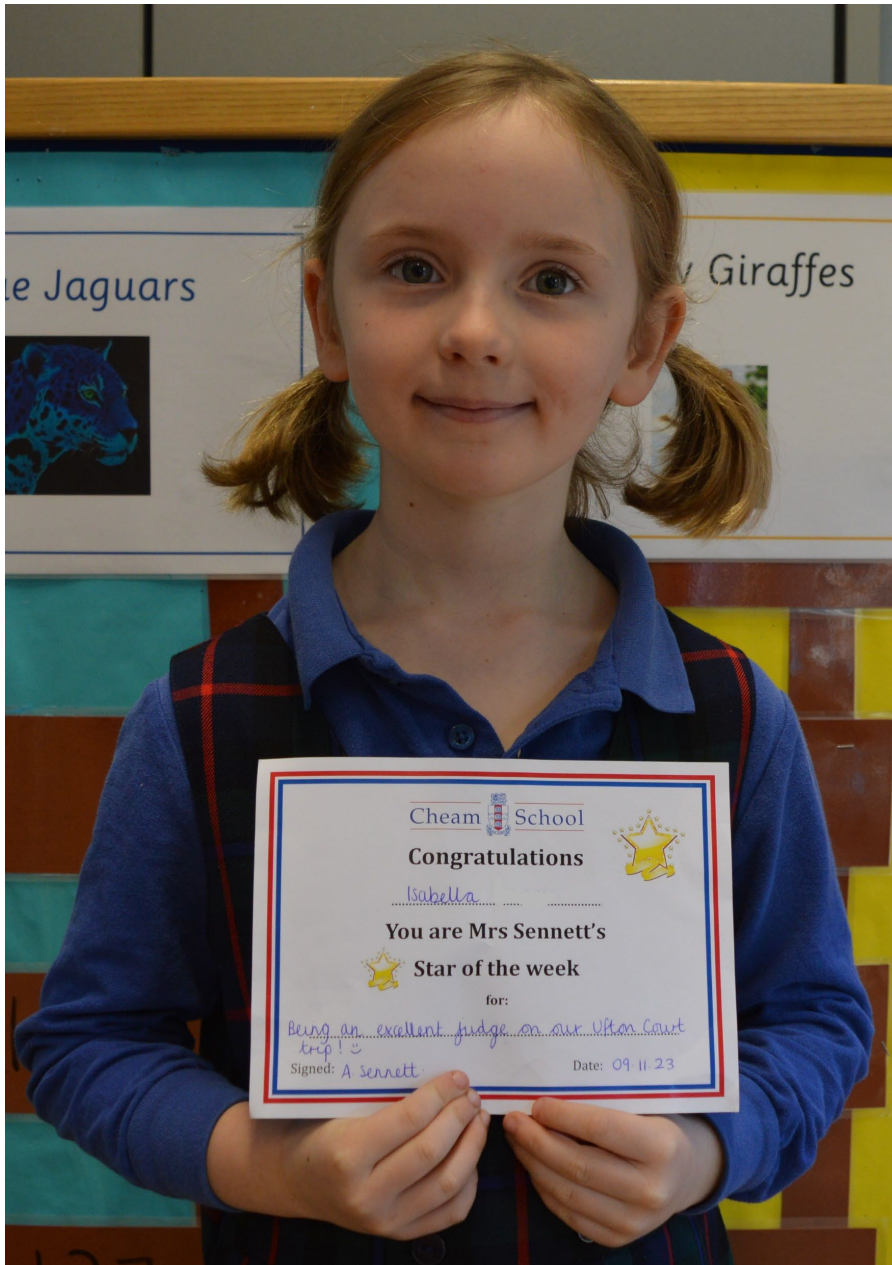 ue Jaguars
y Giraffes
Cheam School
Congratulations
Isabella
You are Mrs Sennett's
Star of the week
for:
Being an excellent judge on our Ufton Court
trip!
Signed: A. Sennett. Date: 09.11.23